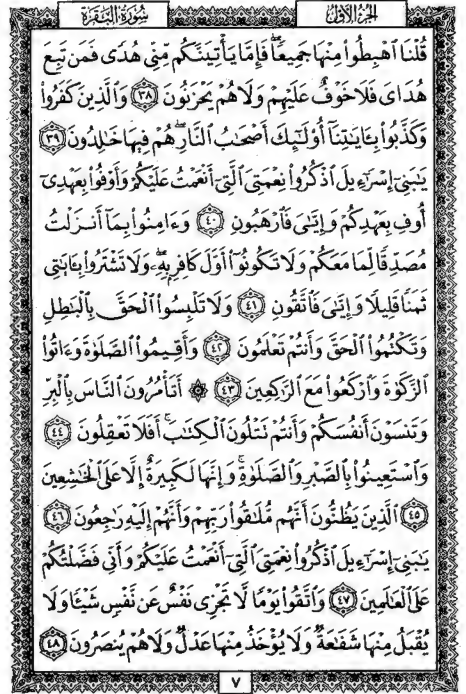 سُورَةُ البَقَرَةِ الجُزْءُ الأَوَّلُ
قُلْنَا ٱهْبِطُوا۟ مِنْهَا جَمِيعًۭا ۖ فَإِمَّا يَأْتِيَنَّكُم مِّنِّى هُدًۭى فَمَن تَبِعَ
هُدَاىَ فَلَا خَوْفٌ عَلَيْهِمْ وَلَا هُمْ يَحْزَنُونَ ٣٨ وَٱلَّذِينَ كَفَرُوا۟
وَكَذَّبُوا۟ بِـَٔايَـٰتِنَآ أُو۟لَـٰٓئِكَ أَصْحَـٰبُ ٱلنَّارِ ۖ هُمْ فِيهَا خَـٰلِدُونَ ٣٩
يَـٰبَنِىٓ إِسْرَٰٓءِيلَ ٱذْكُرُوا۟ نِعْمَتِىَ ٱلَّتِىٓ أَنْعَمْتُ عَلَيْكُمْ وَأَوْفُوا۟ بِعَهْدِىٓ
أُوفِ بِعَهْدِكُمْ وَإِيَّـٰىَ فَٱرْهَبُونِ ٤٠ وَءَامِنُوا۟ بِمَآ أَنزَلْتُ
مُصَدِّقًۭا لِّمَا مَعَكُمْ وَلَا تَكُونُوٓا۟ أَوَّلَ كَافِرٍۭ بِهِۦ ۖ وَلَا تَشْتَرُوا۟ بِـَٔايَـٰتِى
ثَمَنًۭا قَلِيلًۭا وَإِيَّـٰىَ فَٱتَّقُونِ ٤١ وَلَا تَلْبِسُوا۟ ٱلْحَقَّ بِٱلْبَـٰطِلِ
وَتَكْتُمُوا۟ ٱلْحَقَّ وَأَنتُمْ تَعْلَمُونَ ٤٢ وَأَقِيمُوا۟ ٱلصَّلَوٰةَ وَءَاتُوا۟
ٱلزَّكَوٰةَ وَٱرْكَعُوا۟ مَعَ ٱلرَّٰكِعِينَ ٤٣ ۞ أَتَأْمُرُونَ ٱلنَّاسَ بِٱلْبِرِّ
وَتَنسَوْنَ أَنفُسَكُمْ وَأَنتُمْ تَتْلُونَ ٱلْكِتَـٰبَ ۚ أَفَلَا تَعْقِلُونَ ٤٤
وَٱسْتَعِينُوا۟ بِٱلصَّبْرِ وَٱلصَّلَوٰةِ ۚ وَإِنَّهَا لَكَبِيرَةٌ إِلَّا عَلَى ٱلْخَـٰشِعِينَ
٤٥ ٱلَّذِينَ يَظُنُّونَ أَنَّهُم مُّلَـٰقُوا۟ رَبِّهِمْ وَأَنَّهُمْ إِلَيْهِ رَٰجِعُونَ ٤٦
يَـٰبَنِىٓ إِسْرَٰٓءِيلَ ٱذْكُرُوا۟ نِعْمَتِىَ ٱلَّتِىٓ أَنْعَمْتُ عَلَيْكُمْ وَأَنِّى فَضَّلْتُكُمْ
عَلَى ٱلْعَـٰلَمِينَ ٤٧ وَٱتَّقُوا۟ يَوْمًۭا لَّا تَجْزِى نَفْسٌ عَن نَّفْسٍۢ شَيْـًۭٔا وَلَا
يُقْبَلُ مِنْهَا شَفَـٰعَةٌۭ وَلَا يُؤْخَذُ مِنْهَا عَدْلٌۭ وَلَا هُمْ يُنصَرُونَ ٤٨
٧